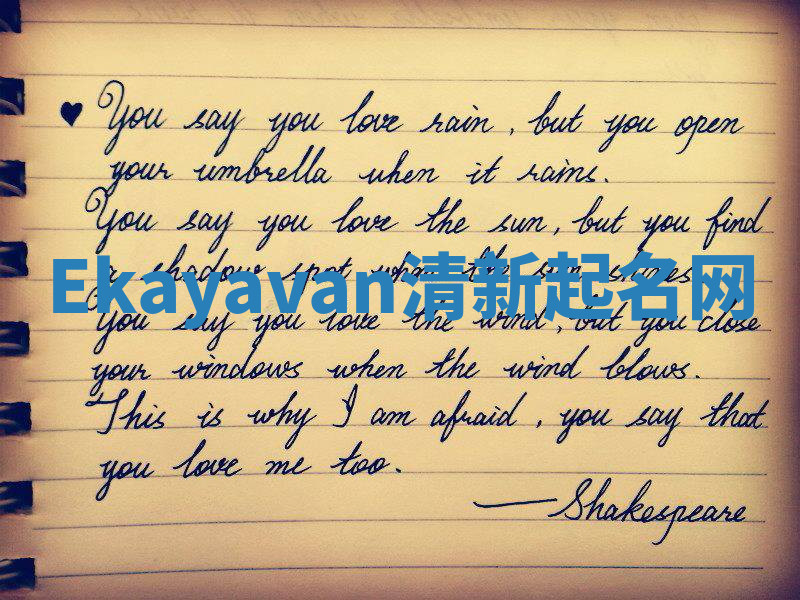 ♥ You say you love rain, but you open
your umbrella when it rains.
You say you love the sun, but you find
a shadow spot when the sun shines.
Ekayavan清新起名网
You say you love the wind, but you close
your windows when the wind blows.
This is why I am afraid, you say that
you love me too.
—Shakespeare